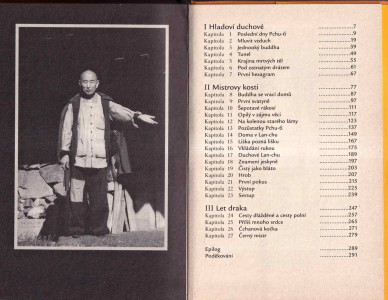 I Hladoví duchové 7
Kapitola 1 Poslední dny Pchu-ů 9
Kapitola 2 Mluvit vzduch 19
Kapitola 3 Jednooký buddha 39
Kapitola 4 Tunel 49
Kapitola 5 Krajina mrtvých těl 55
Kapitola 6 Pod osmatým drázem 61
Kapitola 7 První hexagram 67
II Mistrovy kosti 77
Kapitola 8 Buddha se vrací domů 87
Kapitola 9 První svatyně 91
Kapitola 10 Šeptavé rákosí 97
Kapitola 11 Opilý v zájmu věci 117
Kapitola 12 Na kolenou starého lámy 123
Kapitola 13 Pozůstatky Pchu-ů 137
Kapitola 14 Doma v Lan-chu 149
Kapitola 15 Liška pozná lišku 167
Kapitola 16 Vkládání rukou 173
Kapitola 17 Duchové Lan-chu 189
Kapitola 18 Znamení jeskyně 197
Kapitola 19 Čistý jako bláto 203
Kapitola 20 Hrob 207
Kapitola 21 První pokus 215
Kapitola 22 Výstup 225
Kapitola 23 Sestup 239
III Let draka 247
Kapitola 24 Cesty dlážděné a cesty polní 257
Kapitola 25 Příliš mnoho srdce 265
Kapitola 26 Čchanová kočka 271
Kapitola 27 Černý mistr 279
Epilog 289
Poděkování 291